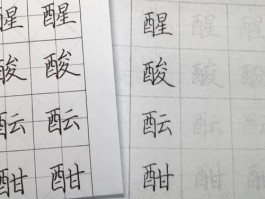 醒 醒 醒 醒 醒
酸 酸 酸 酸 酸
酝 酝 酝 酝 酝
酣 酣 酣 酣 酣